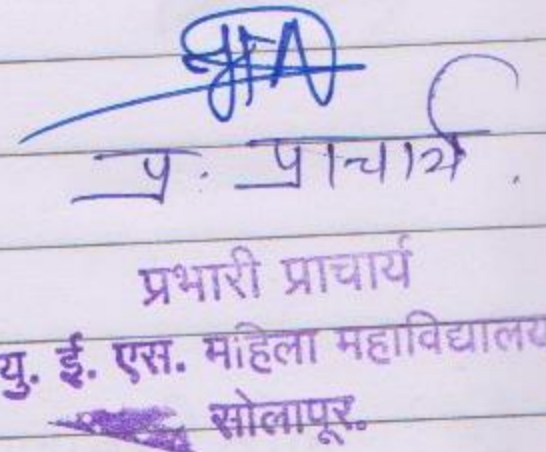 प्र. प्राचार्य.
प्रभारी प्राचार्य
यु. ई. एस. महिला महाविद्यालय
सोलापूर.